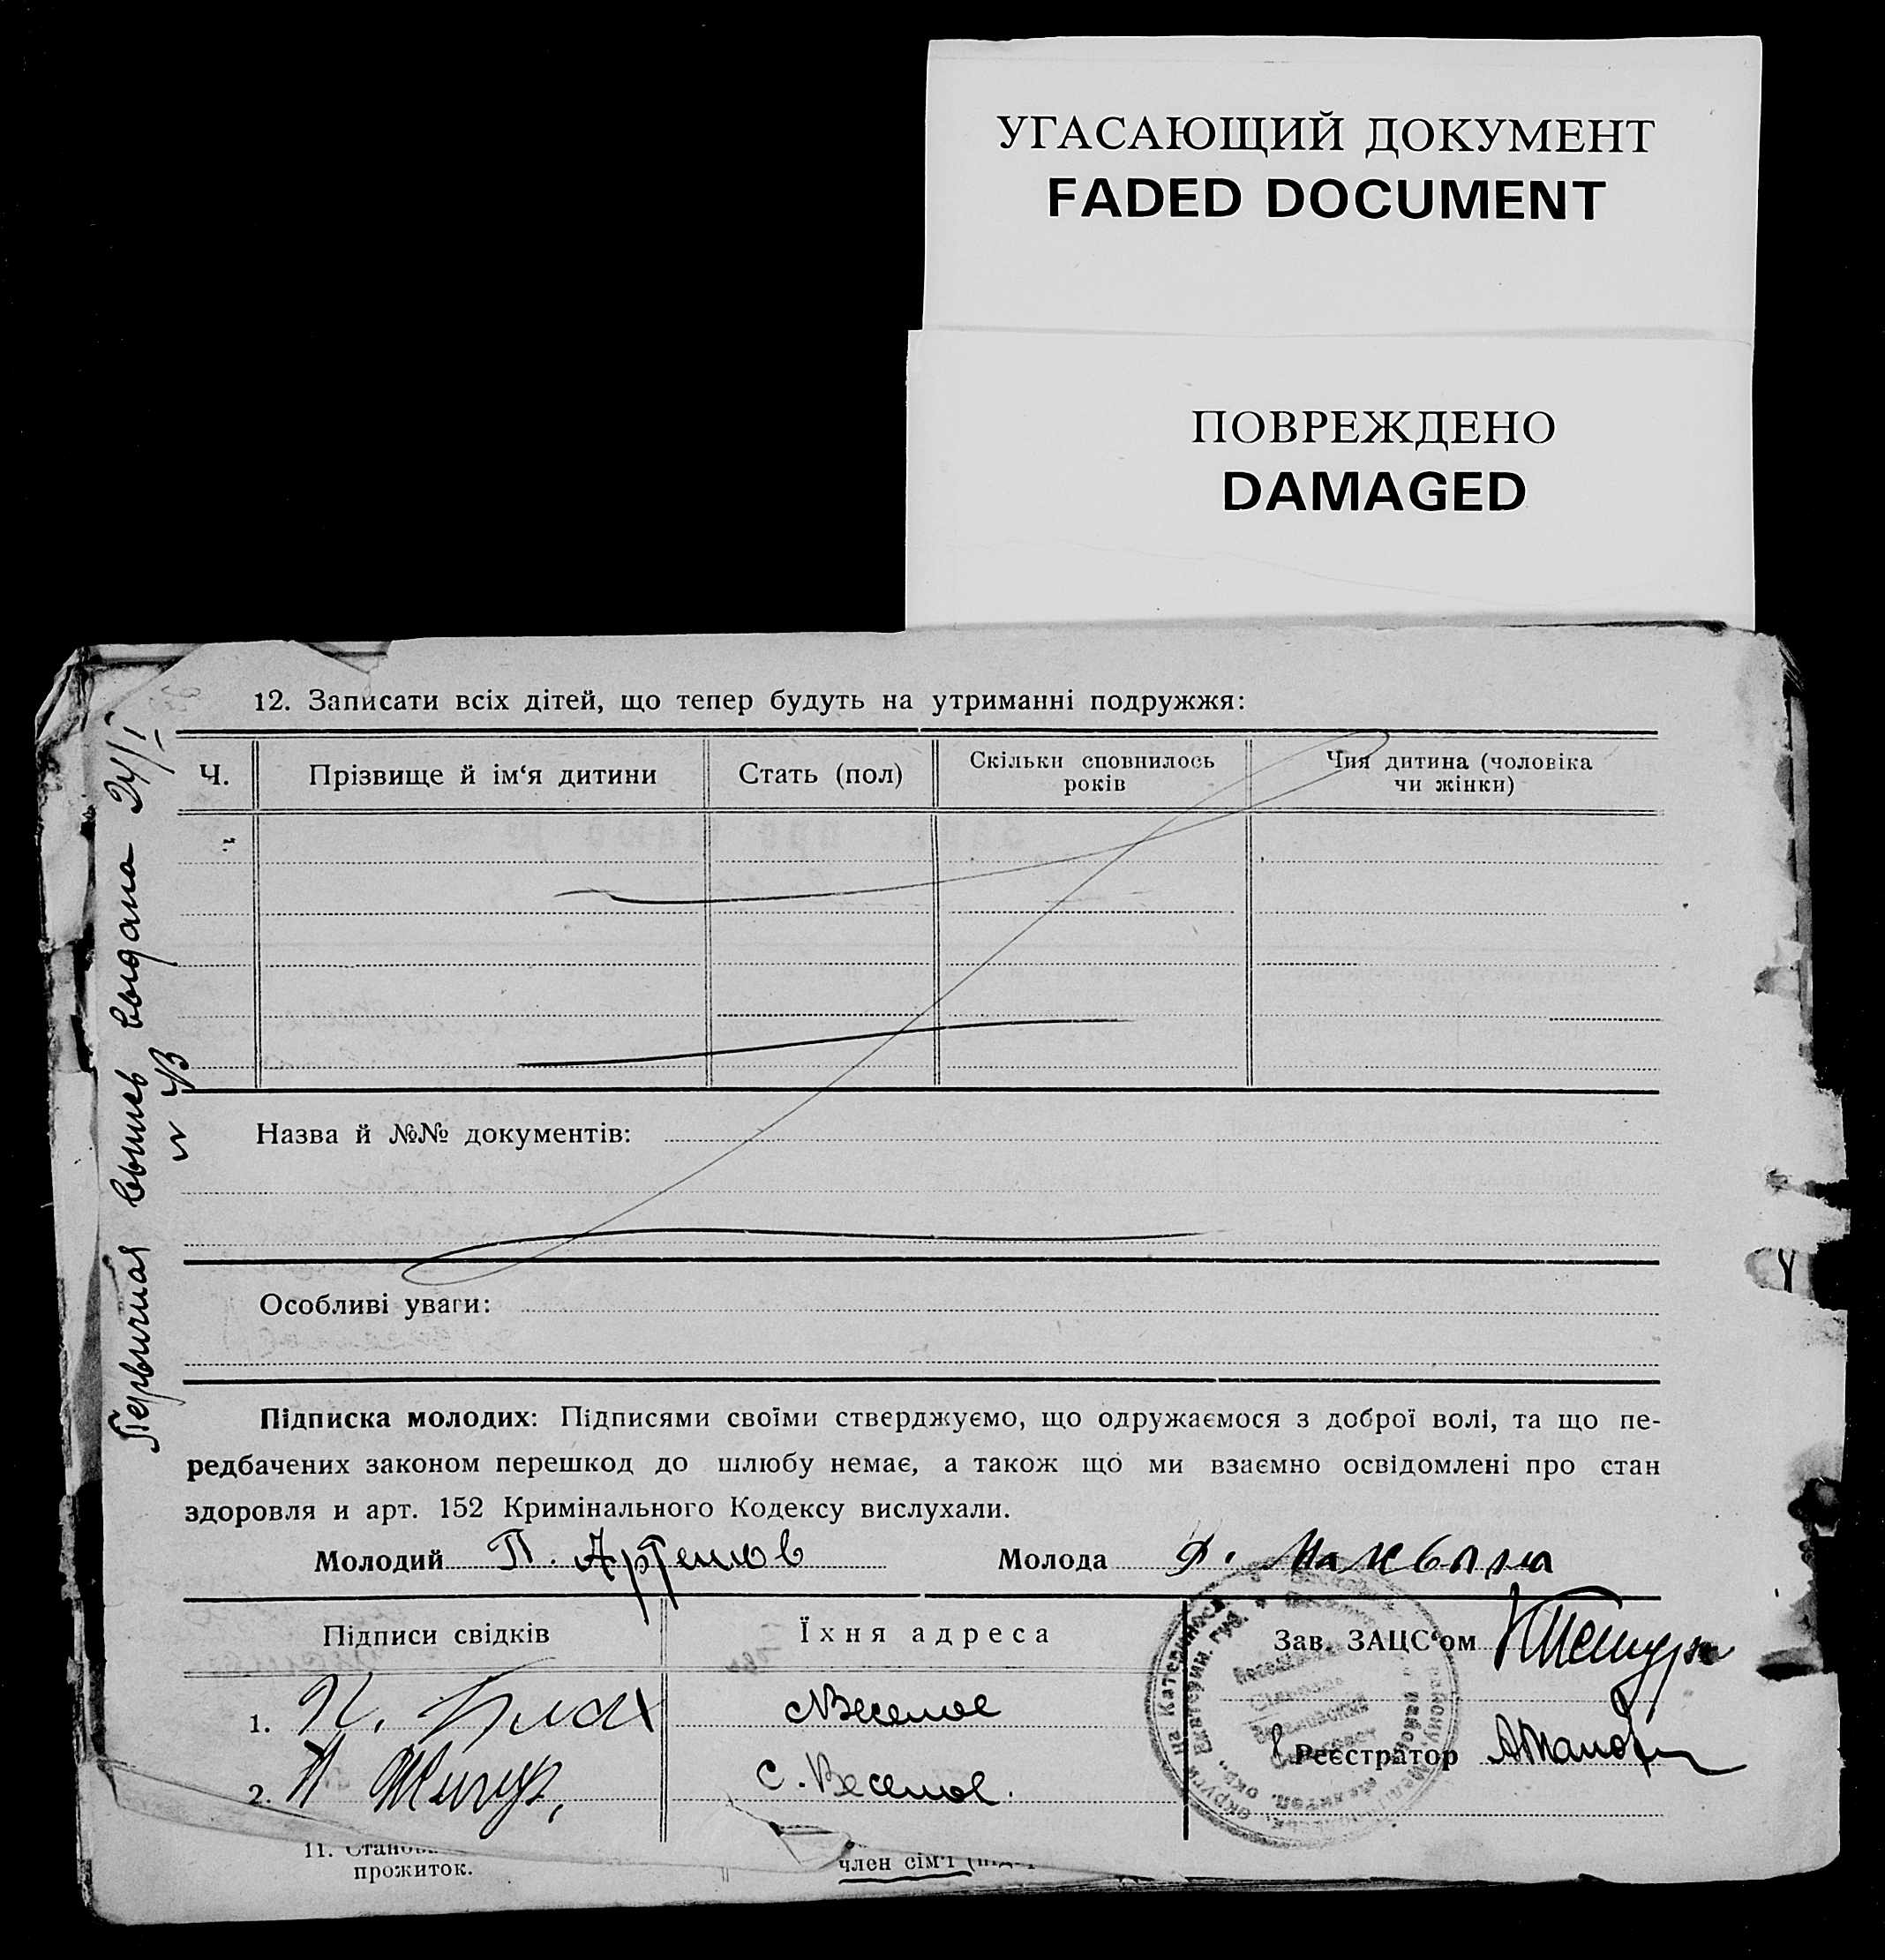 УГАСАЮЩИЙ ДОКУМЕНТ
FADED DOCUMENT
ПОВРЕЖДЕНО
DAMAGED
12. Записати всіх дітей, що тепер будуть на утриманні подружжя:
Ч.
Прізвище й ім‘я дитини
Стать (пол)
Скільки сповнилось
років
Чия дитина (чоловіка
чи жінки)
Назва й №№ документів:
Особливі уваги:
Підписка молодих: Підписями своїми стверджуємо, що одружаємося з доброї волі, та що пе-
редбачених законом перешкод до шлюбу немає, а також що ми взаємно освідомлені про стан
здоровля и арт. 152 Кримінального Кодексу вислухали.
Молодий П. Артемов Молода
Підписи свідків
Їхня адреса
Зав. ЗАЦС‘ом
1.
Веселое
2.
с. Веселое.
Реєстратор
11.
прожиток.
член сім'ї
Первичная выпись выдана 24/I